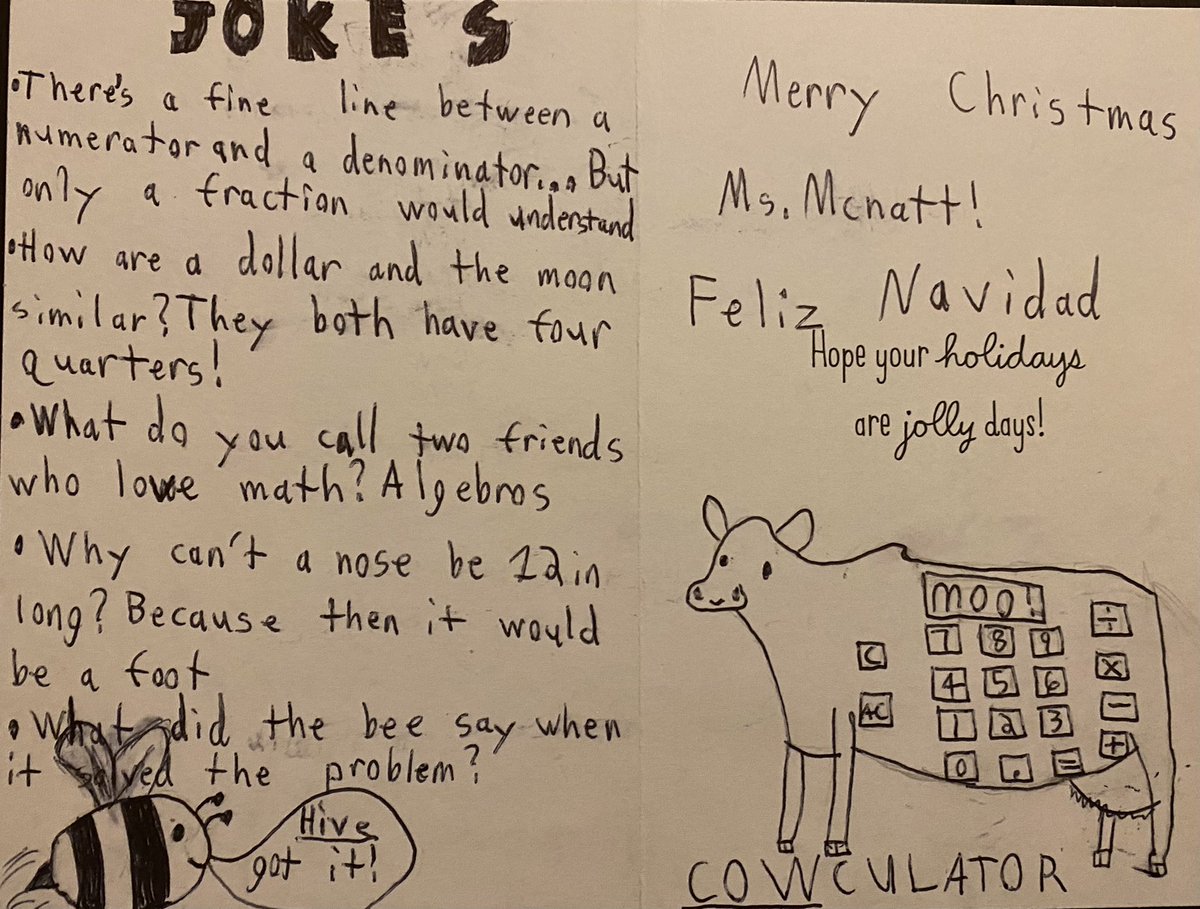 JOKES
•There's a fine line between a
numerator and a denominator... But
only a fraction would understand
•How are a dollar and the moon
similar? They both have four
quarters!
•What do you call two friends
who love math? Algebros
•Why can't a nose be 12in
long? Because then it would
be a foot
•What did the bee say when
it solved the problem?
Hive
got it!
Merry Christmas
Ms. Mcnatt!
Feliz Navidad
Hope your holidays
are jolly days!
moo!
7 8 9 ÷
C 4 5 6 x
AC 1 2 3 -
0 . = +
COWCULATOR